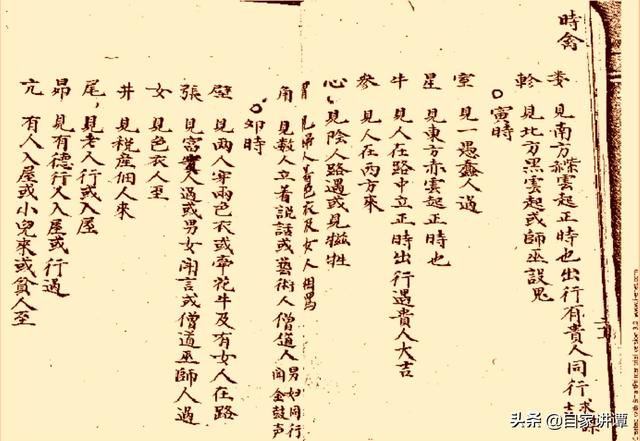 時禽
婁 見南方紫雲起正時也出行有貴人同行求
軫 見北方黑雲起或師巫設鬼
寅時
室 見一愚蠢人過
星 見東方赤雲起正時也
牛 見人在路中立正時出行遇貴人大吉
參 見人在丙方來
心 見陰人路遇或見犠牲
胃 見婦人着色衣及女人相罵
角 見數人立着説話或藝術人僧道人男妇同行闻金鼓声
卯時
壁 見兩人穿兩色衣或牽花牛及有女人在路
張 見富貴人過或男女閙言或僧道巫師人過
女 見色衣人至
井 見税産佃人來
尾 見老人行或入屋
昴 見有德行人入屋或行過
亢 有人入屋或小兒來或貧人至
头条 @自家讲谭